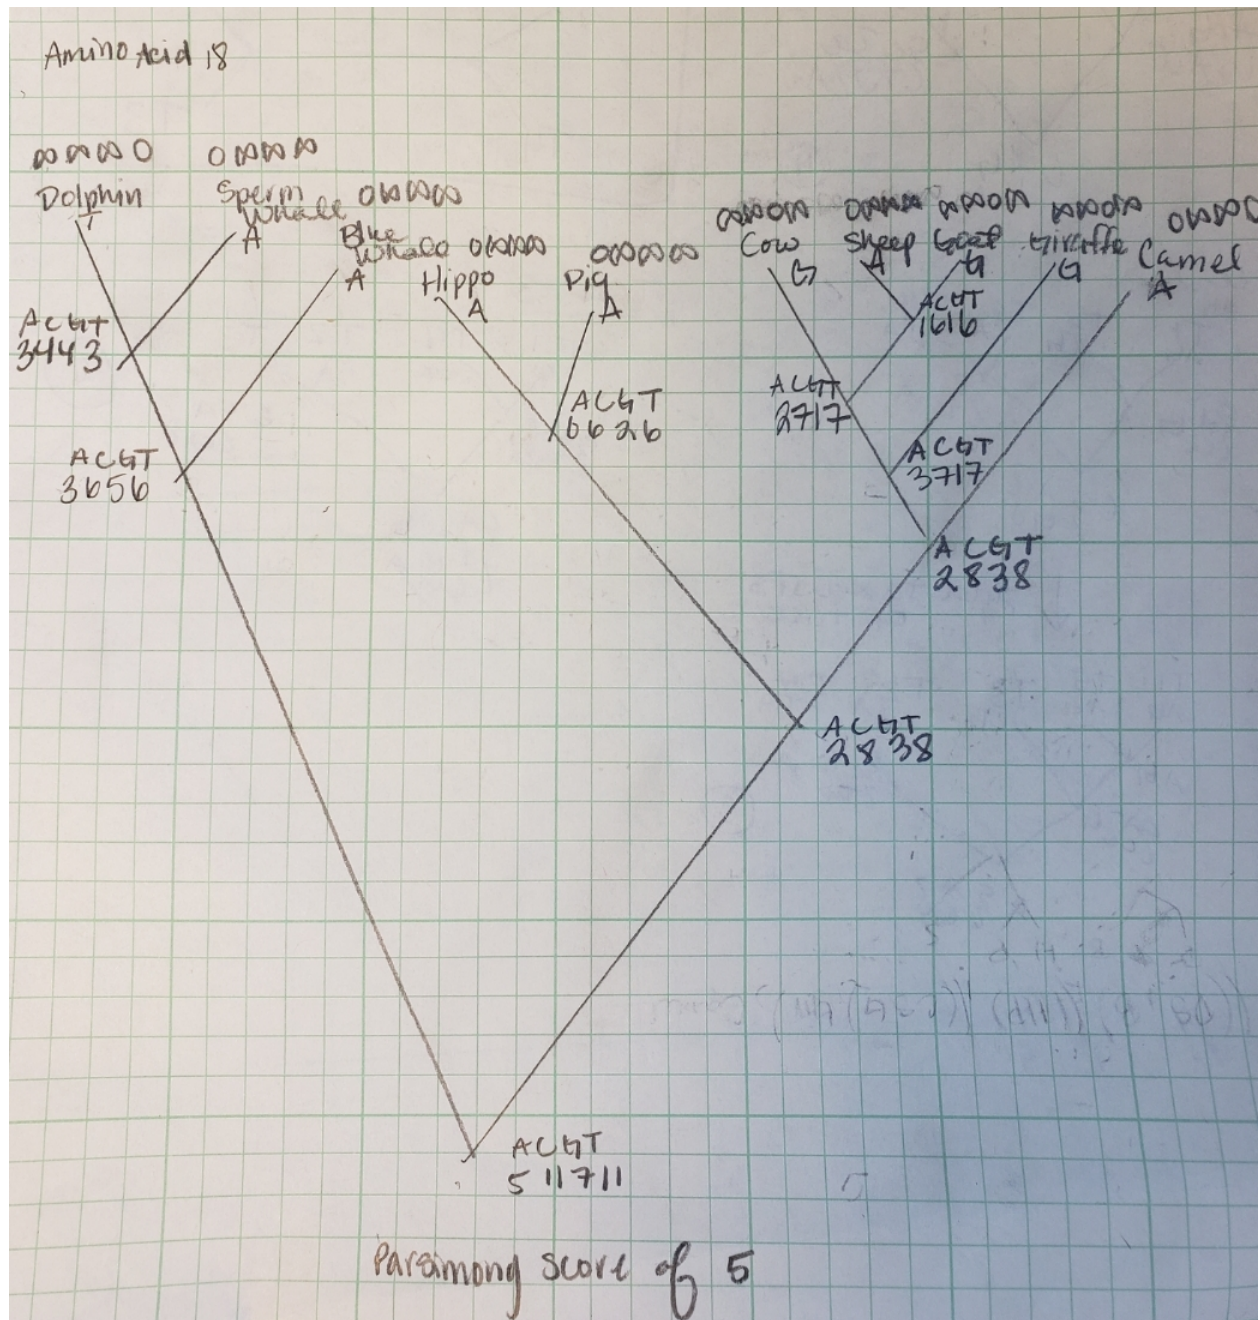 Amino Acid 18
∞ ∞ ∞ 0
0 ∞ ∞ ∞
Dolphin
T
Sperm
Whale
A
0 ∞ ∞ ∞
Blue
Whale
A
0 ∞ ∞ ∞
Hippo
A
0 ∞ ∞ ∞
Pig
A
∞ ∞ 0 ∞
Cow
G
0 ∞ ∞ ∞
Sheep
A
∞ ∞ 0 ∞
Goat
G
∞ ∞ 0 ∞
Giraffe
G
0 ∞ ∞ ∞
Camel
A
ACGT
3443
ACGT
1616
ACGT
2717
ACGT
6626
ACGT
3656
ACGT
3717
ACGT
2838
ACGT
2838
ACGT
5 11 7 11
Parsimony score of 5